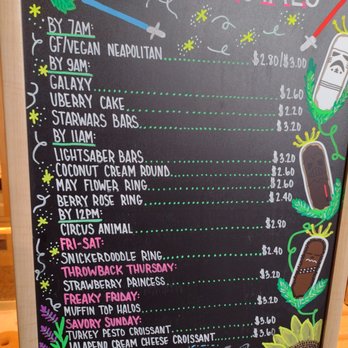 BY 7AM:
GF/VEGAN NEAPOLITAN $2.80/$3.00
BY 9AM:
GALAXY $2.60
UBERRY CAKE $2.20
STARWARS BARS $3.20
BY 11AM:
LIGHTSABER BARS $3.20
COCONUT CREAM ROUND $2.60
MAY FLOWER RING $2.60
BERRY ROSE RING $2.40
BY 12PM:
CIRCUS ANIMAL $2.80
FRI-SAT:
SNICKERDOODLE RING $2.40
THROWBACK THURSDAY:
STRAWBERRY PRINCESS $3.20
FREAKY FRIDAY:
MUFFIN TOP HALOS $3.20
SAVORY SUNDAY:
TURKEY PESTO CROISSANT $3.60
JALAPENO CREAM CHEESE CROISSANT $3.60